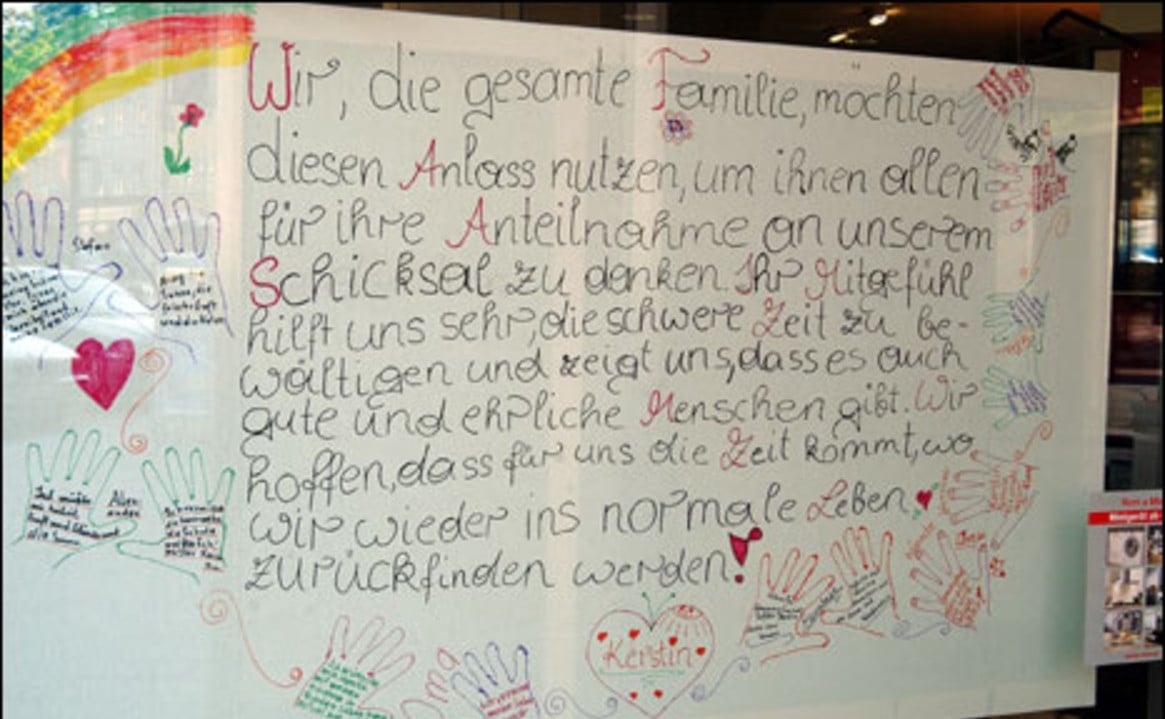 Wir, die gesamte Familie, möchten
diesen Anlass nutzen, um ihnen allen
für ihre Anteilnahme an unserem
Schicksal zu danken. Ihr Mitgefühl
hilft uns sehr, die schwere Zeit zu be-
wältigen und zeigt uns, dass es auch
gute und ehrliche Menschen gibt. Wir
hoffen, dass für uns die Zeit kommt, wo
wir wieder ins normale Leben
zurückfinden werden!
Kerstin